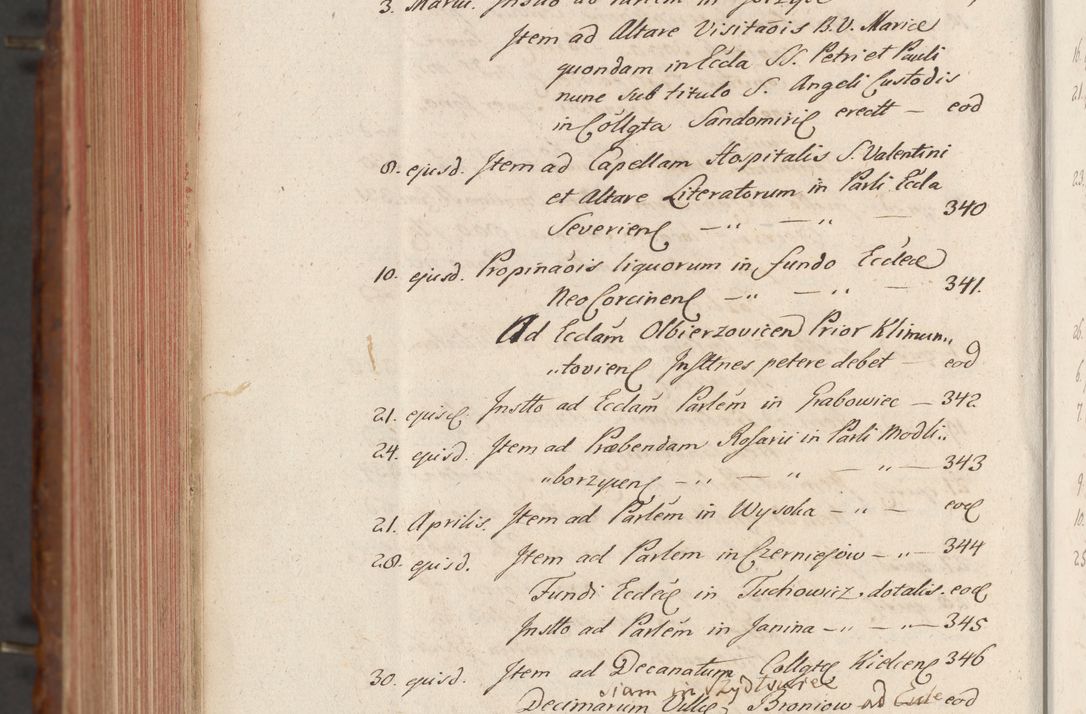 3. Martii. Instto ad Parlem in Gorzyce
Item ad Altare Visitaõis B.V. Mariæ
quondam in Eccla SS. Petri et Pauli
nunc sub titulo S. Angeli Custodis
in Collgta Sandomirię erectt — eod
8. ejusd. Item ad Capellam Hospitalis S. Valentini
et Altare Literatorum in Parli Eccla
Severienę — „ — „ — 340
10. ejusd. Propinaõis liquorum in fundo Eccleæ
NeoCorcinenę — „ — „ — 341.
Ad Ecclam Olbierzovicen Prior Klimun„
„tovienę Insttnes petere debet — eod
21. ejusd. Instto ad Ecclam Parlém in Grabowiec — 342
24. ejusd. Item ad Præbendam Rosarii in Parli Modli„
„borzycenę — „ — „ — „ — 343
21. Aprilis. Item ad Parlem in Wysoka — „ — eod
28. ejusd. Item ad Parlem in Czerniejow — „ — 344
Fundi Eccleę in Tuchowicz dotalis. eod
Instto ad Parlém in Janina — „ — „ — 345
30. ejusd. Item ad Decanatum Collgtę Kielcenę 346
siam in Szydłowiec
Decimarum Villę Broniow ad eod